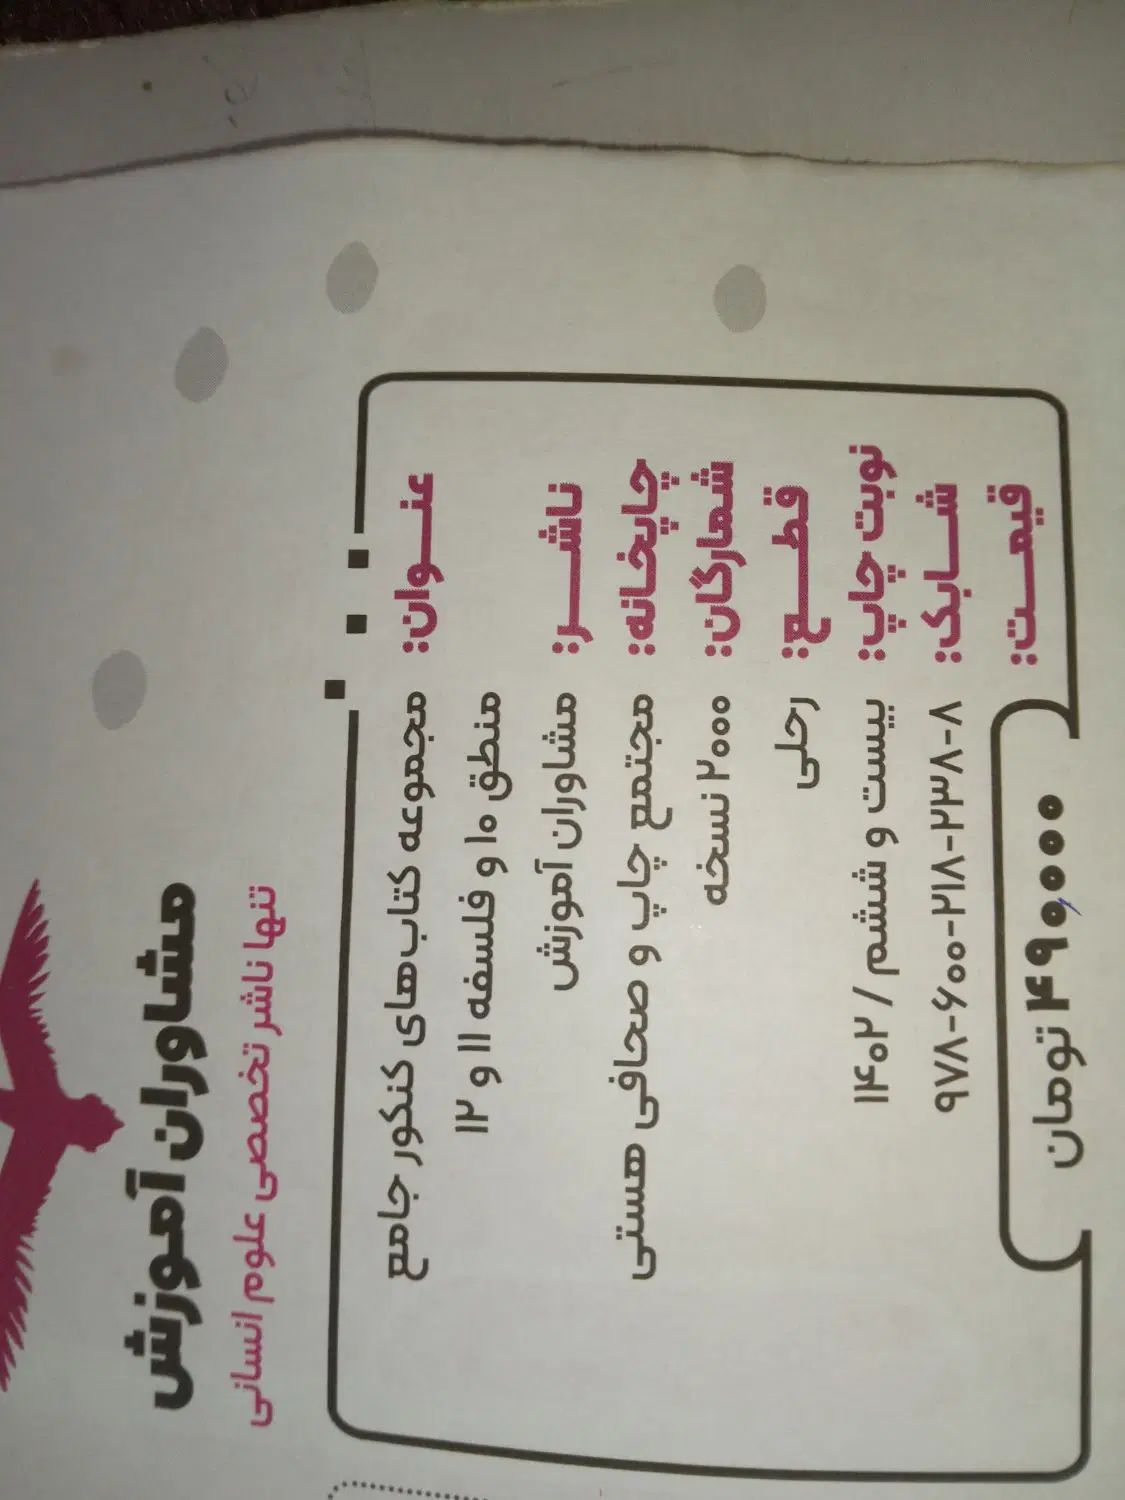 مشاوران آموزش
تنها ناشر تخصصی علوم انسانی
عنـــوان: مجموعه کتاب‌های کنکور جامع
منطق ۱۰ و فلسفه ۱۱ و ۱۲
ناشـــر: مشاوران آموزش
چاپخانه: مجتمع چاپ و صحافی هستی
شمارگان: ۲۰۰۰ نسخه
قطـــع: رحلی
نوبت چاپ: بیست و ششم / ۱۴۰۲
شـــابک: ۹۷۸-۶۰۰-۲۱۸-۳۲۲-۷-۷
قیمـــت: ۴۹۰۰۰۰ تومان